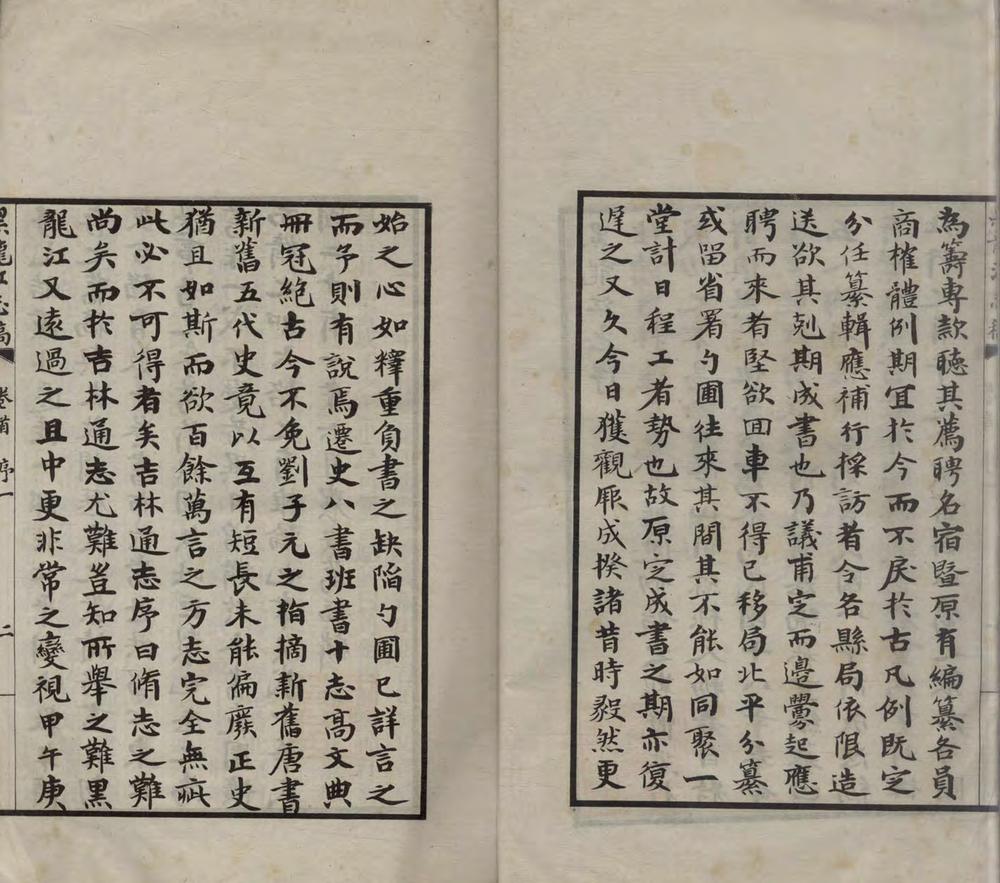 為籌專款聽其薦聘名宿暨原有編纂各員
商榷體例期宜於今而不戾於古凡例既定
分任纂輯應補行採訪者令各縣局依限造
送欲其剋期成書也乃議甫定而邊釁起應
聘而來者堅欲回車不得已移局北平分纂
或留省署勺圃往來其間其不能如同聚一
堂計日程工者勢也故原定成書之期亦復
遲之又久今日獲觀厥成揆諸昔時毅然更
始之心如釋重負書之缺陷勺圃已詳言之
而予則有說焉遷史八書班書十志高文典
冊冠絕古今不免劉子元之指摘新舊唐書
新舊五代史竟以互有短長未能偏廢正史
猶且如斯而欲百餘萬言之方志完全無疵
此必不可得者矣吉林通志序曰脩志之難
尚矣而於吉林通志尤難豈知所舉之難黑
龍江又遠過之且中更非常之變視甲午庚
黑龍江志稿 卷首 序一 二